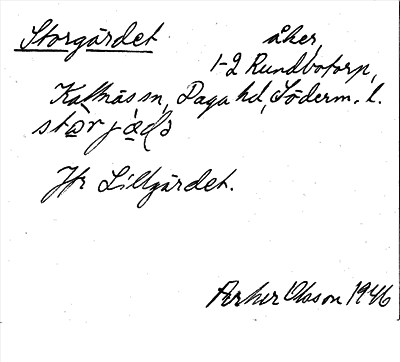 Storgärdet åker,
1-2 Rundbotorp,
Kattnäs sn, Daga hd, Söderm. l.

Jfr Lillgärdet.
Olsson 1946